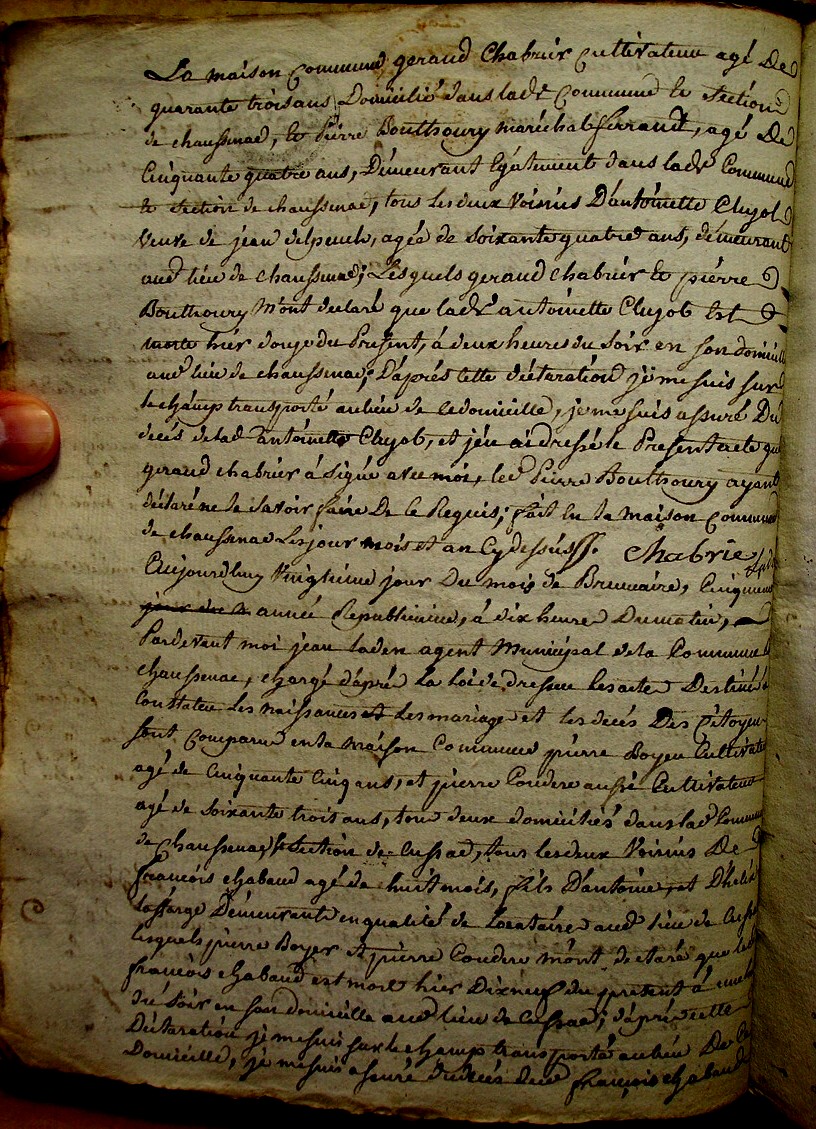 La maison Commune, geraud Chabrier Cultivateur agé De
quarante trois ans, Domicilié dans lade Commune et section
de chaussenac, et Pierre Bouthoury maréchal ferrand, agé De
Cinquante quatre ans, Démeurant Egalement dans lade Commune
et section de chaussenac, tous les deux Voisins D'antoinette Clujol
Veuve de jean delpeuch, agée de soixante quatre ans, démeurant
aud lieu de chaussenac; Lesquels geraud chabrier et pierre
Bouthoury M'ont declaré que lade antoinette Clujol Est
morte hier douze du Present, à deux heures du soir en son domicille
aud lieu de chaussenac; D'aprés cette déclaration je me suis sur
le champ transporté au lieu de ce domicille, je me suis assuré Du
decés de lad antoinette Clujol, et j'en ai dressé le Present acte que
geraud chabrier à signé avec moi, led Pierre Bouthoury ayant
déclaré ne le savoir faire De ce Requis; fait En la maison commune
de chaussenac Les jour mois et an Cy dessus. Chabrie
Aujourdhuy Vingtieme jour Du mois de Brumaire, Cinquieme
année Republicaine, à dix heure Du matin,
Pardevant moi jean laden agent Municipal de la Commune
chaussenac, chargé d'apré La Loi de dresser les acte Destiné à
Constater Les naissances et Les mariage et les decés Des Citoyens
sont Comparu en la maison Commune pierre Boyer Cultivate
agé de Cinquante Cinq ans, et pierre Couderc aussi Cultivateur
agé de soixante trois ans, tous deux domiciliés dans lad Commune
de Chaussenac, et section de Cussac, tous les deux Voisins De
françois chabaud agé de huit mois, fils D'antoine, et D'helis
laffarge Démeurants en qualité de Locataire aud lieu de Cussa
lesquels pierre Boyer et pierre Couderc m'ont declaré que led
françois chabaud est mort hier Dixneuf du present à une
du soir en son domicille aud lieu de Cussac; d'apré cette
Déclaration je me suis sur le champ transporté au lieu De Ce
Domicille, je me suis assuré du decés dud françois chabaud